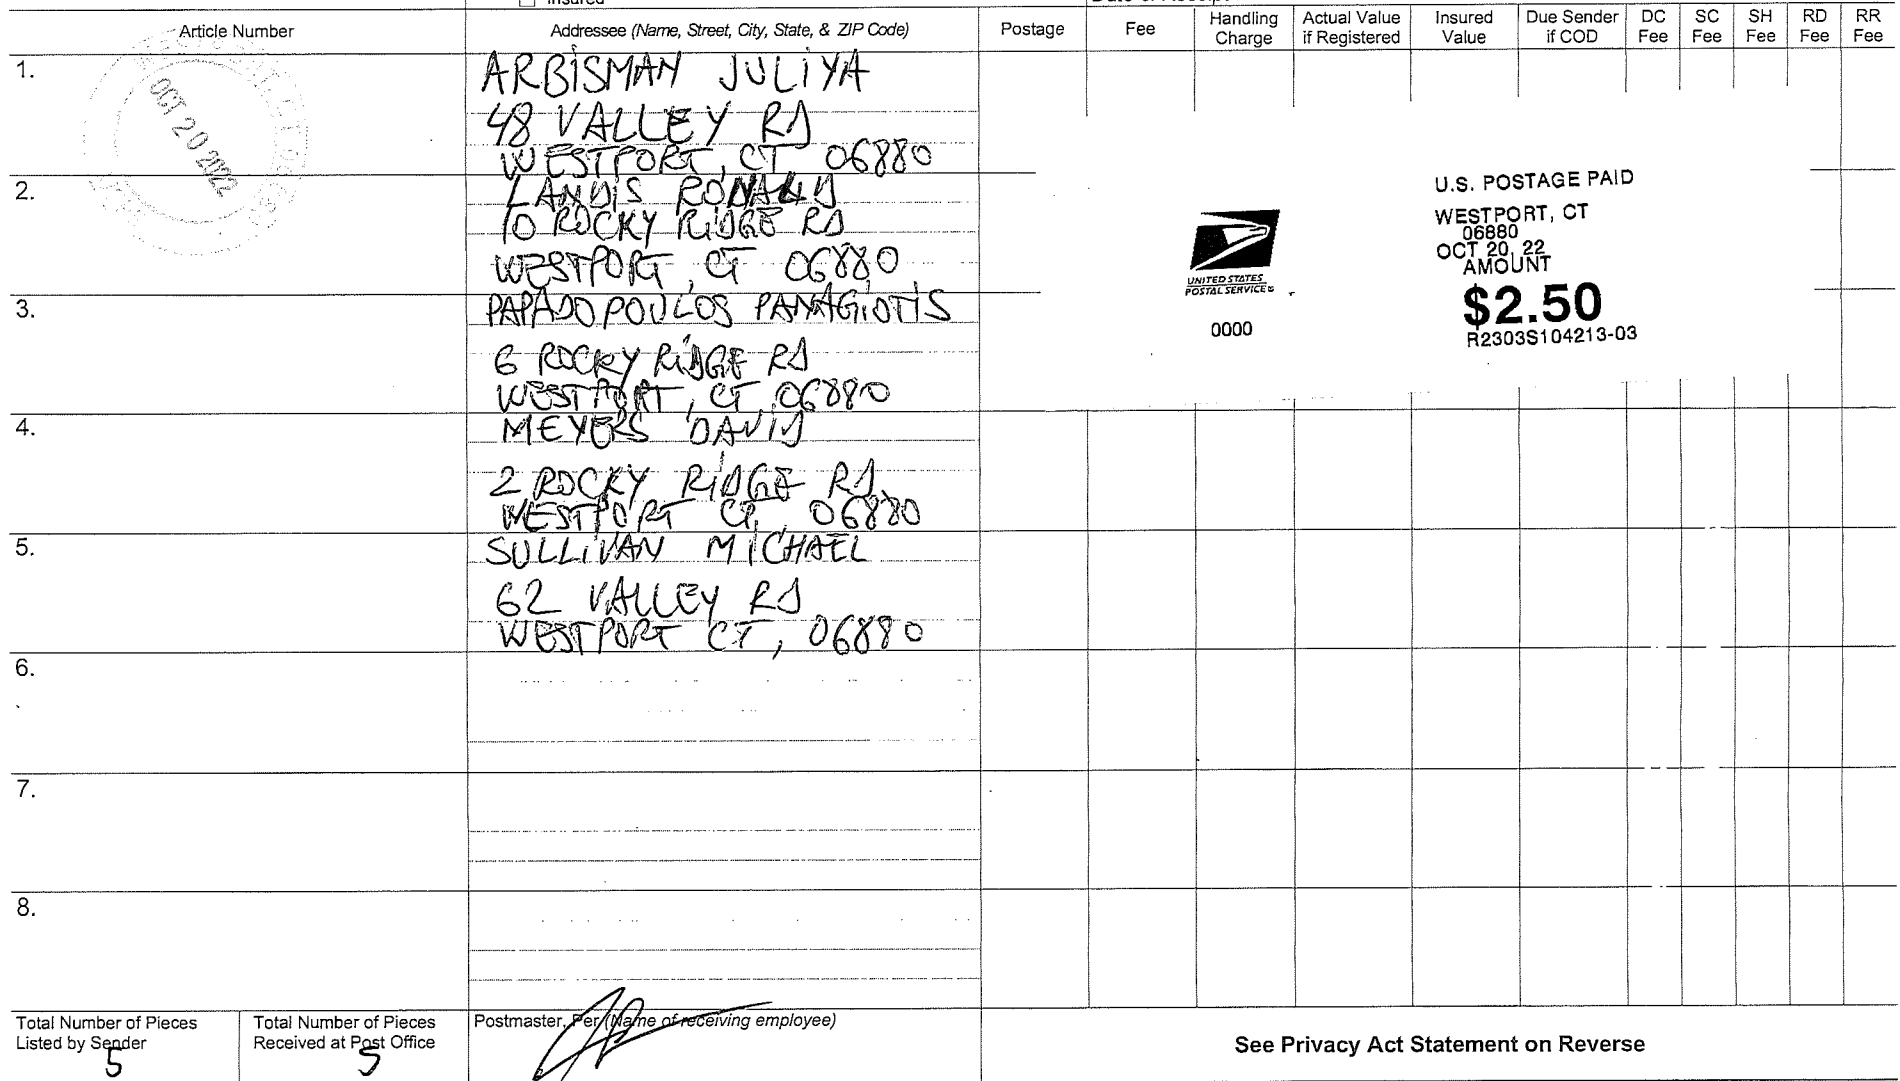 Insured
Article Number
Addressee (Name, Street, City, State, & ZIP Code)
Postage
Fee
Handling Charge
Actual Value if Registered
Insured Value
Due Sender if COD
DC Fee
SC Fee
SH Fee
RD Fee
RR Fee
OCT 20 2022
1.
ARBISMAN JULIYA
48 VALLEY RD
WESTPORT, CT 06880
2.
LANDIS RONALD
10 ROCKY RIDGE RD
WESTPORT, CT 06880
3.
PAPADOPOULOS PANAGIOTIS
6 ROCKY RIDGE RD
WESTPORT, CT 06880
4.
MEYERS DAVID
2 ROCKY RIDGE RD
WESTPORT CT, 06880
5.
SULLIVAN MICHAEL
62 VALLEY RD
WESTPORT CT, 06880
6.
7.
8.
UNITED STATES
POSTAL SERVICE
0000
U.S. POSTAGE PAID
WESTPORT, CT
06880
OCT 20, 22
AMOUNT
$2.50
R2303S104213-03
Total Number of Pieces
Listed by Sender
5
Total Number of Pieces
Received at Post Office
5
Postmaster, Per (Name of receiving employee)
See Privacy Act Statement on Reverse